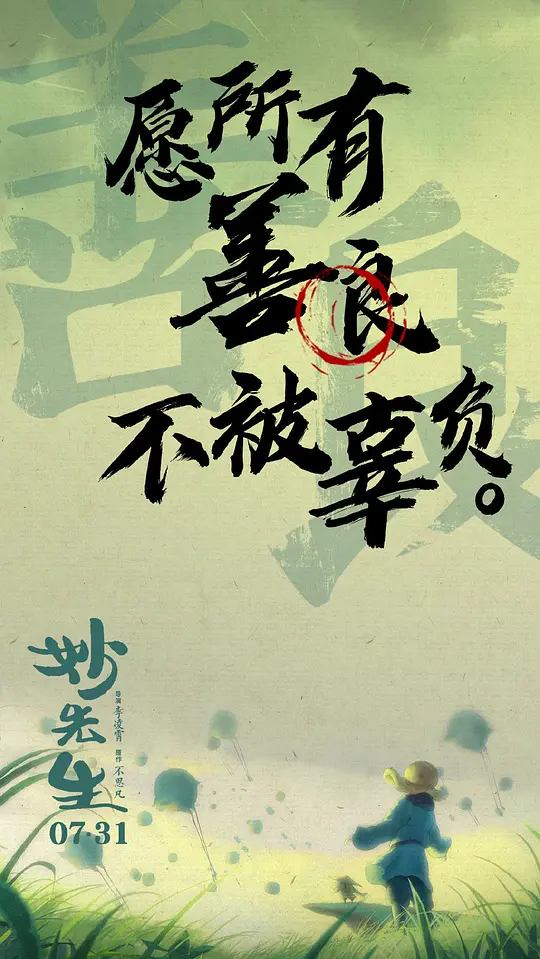 愿所有
善良
不被辜负。
善良
妙先生
导演 李凌霄
原作 不思凡
07·31